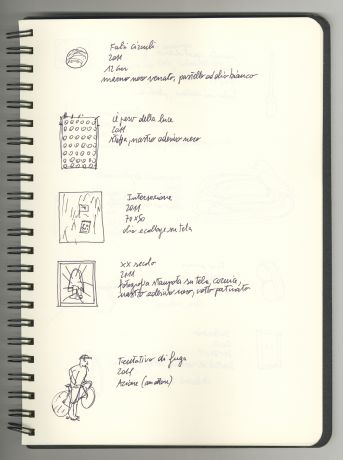 2011
12 cm
marmo nero venato, pastello ad olio bianco
il peso della luce
2011
stoffa, nastro adesivo nero
Interrazione
2011
70x50
olio e collage su tela
XX secolo
2011
fotografia stampata su tela, cornice,
nastro adesivo nero, vetro
Tentativo di fuga
2011
Azione